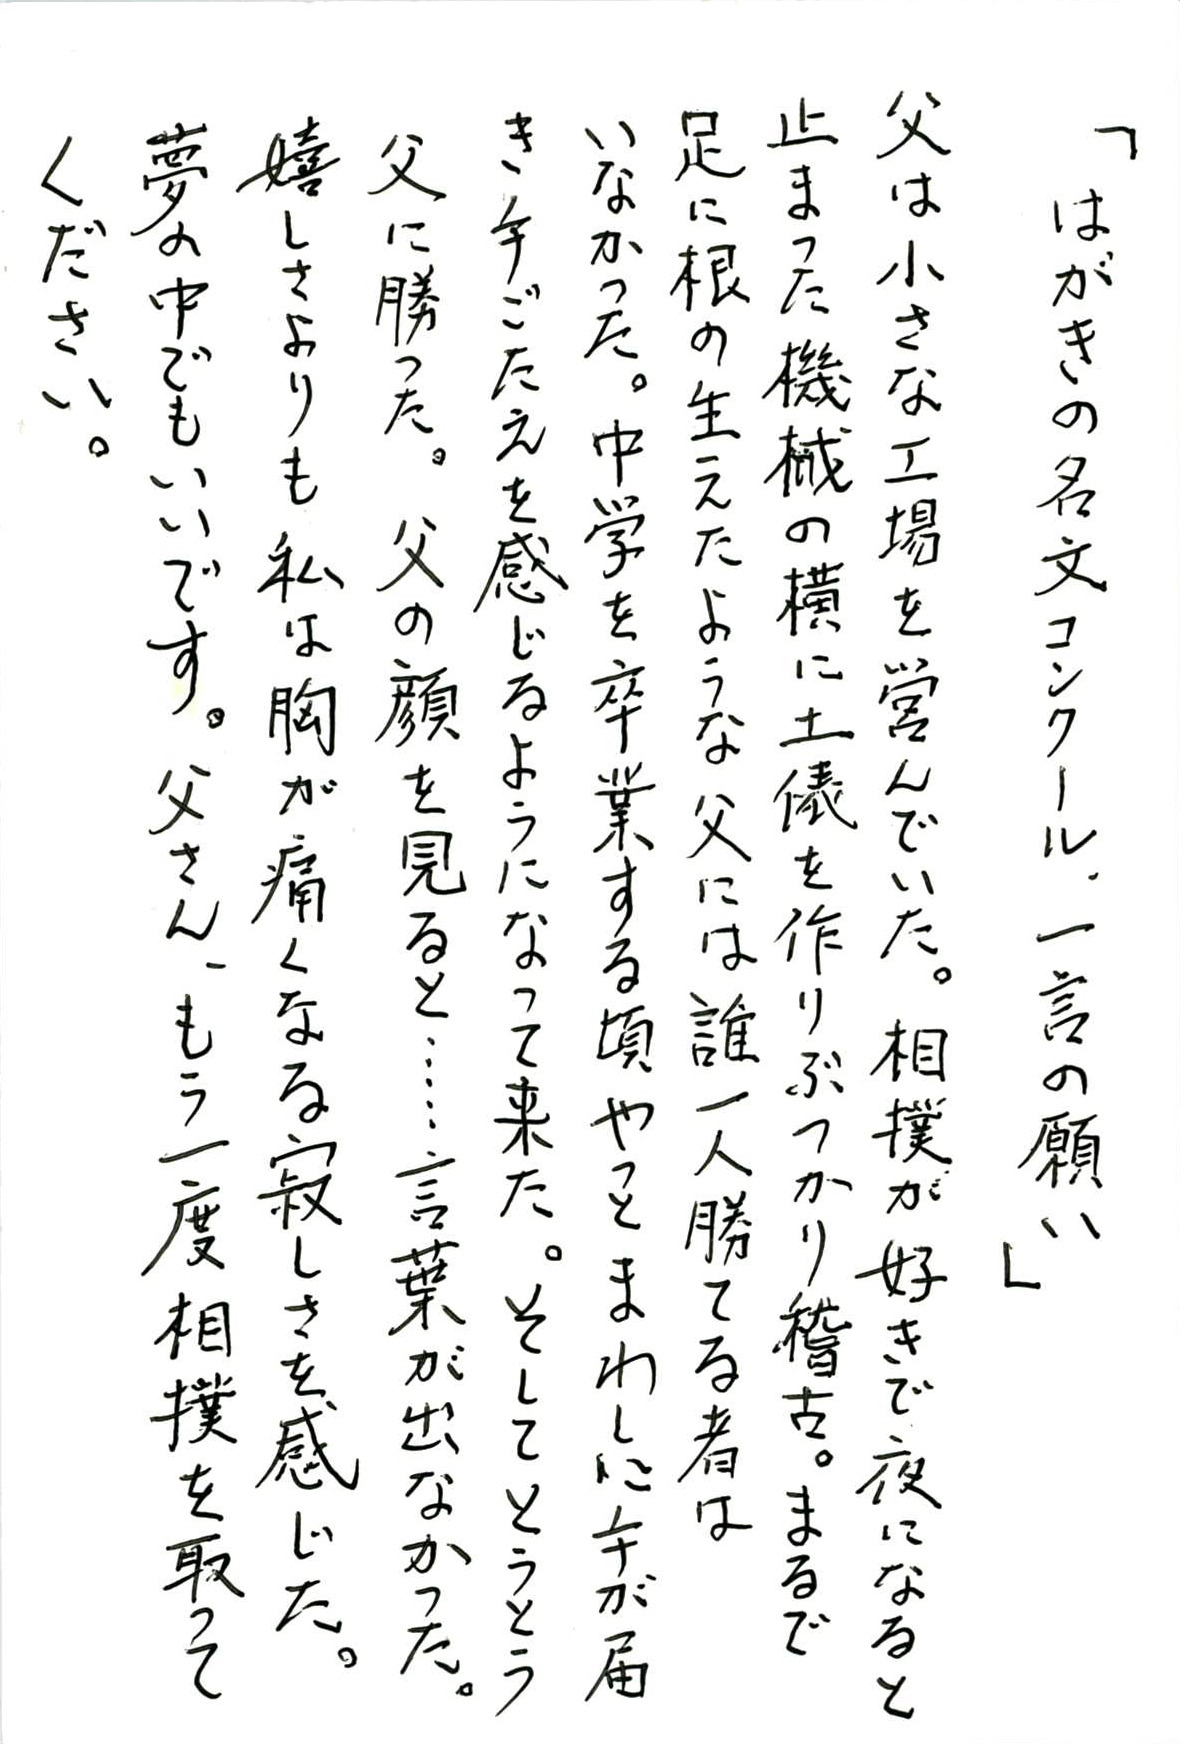 「はがきの名文コンクール、一言の願い」
父は小さな工場を営んでいた。相撲が好きで夜になると
止まった機械の横に土俵を作りぶつかり稽古。まるで
足に根の生えたような父には誰一人勝てる者は
いなかった。中学を卒業する頃やっとまわしに手が届
き手ごたえを感じるようになって来た。そしてとうとう
父に勝った。父の顔を見ると……言葉が出なかった。
嬉しさよりも私は胸が痛くなる寂しさを感じた。
夢の中でもいいです。父さん、もう一度相撲を取って
ください。